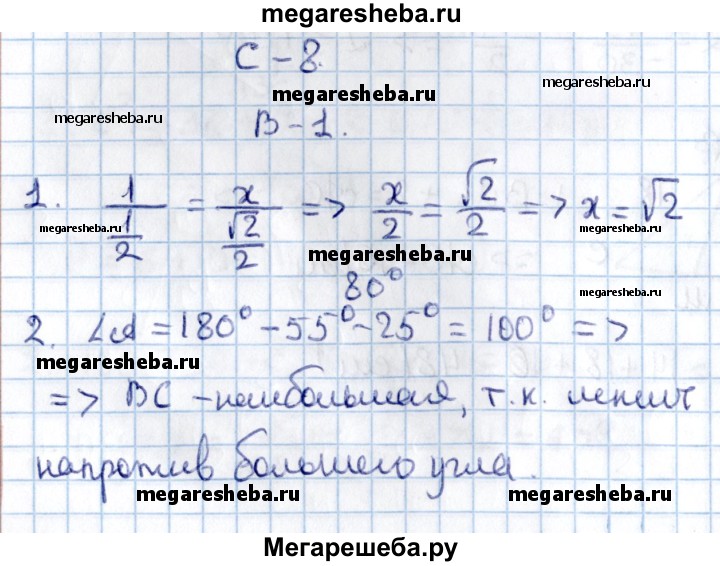 megaresheba.ru
С - 8.
megaresheba.ru
megaresheba.ru
megaresheba.ru
В - 1.
1. 1/(1/2) = x/(√2/2) => x/2 = √2/2 => x = √2
megaresheba.ru
megaresheba.ru
80°
megaresheba.ru
2. ∠A = 180° - 55° - 25° = 100° =>
megaresheba.ru
=> BC - наибольшая, т.к. лежит
напротив большего угла.
megaresheba.ru
megaresheba.ru
Мегарешеба.ру